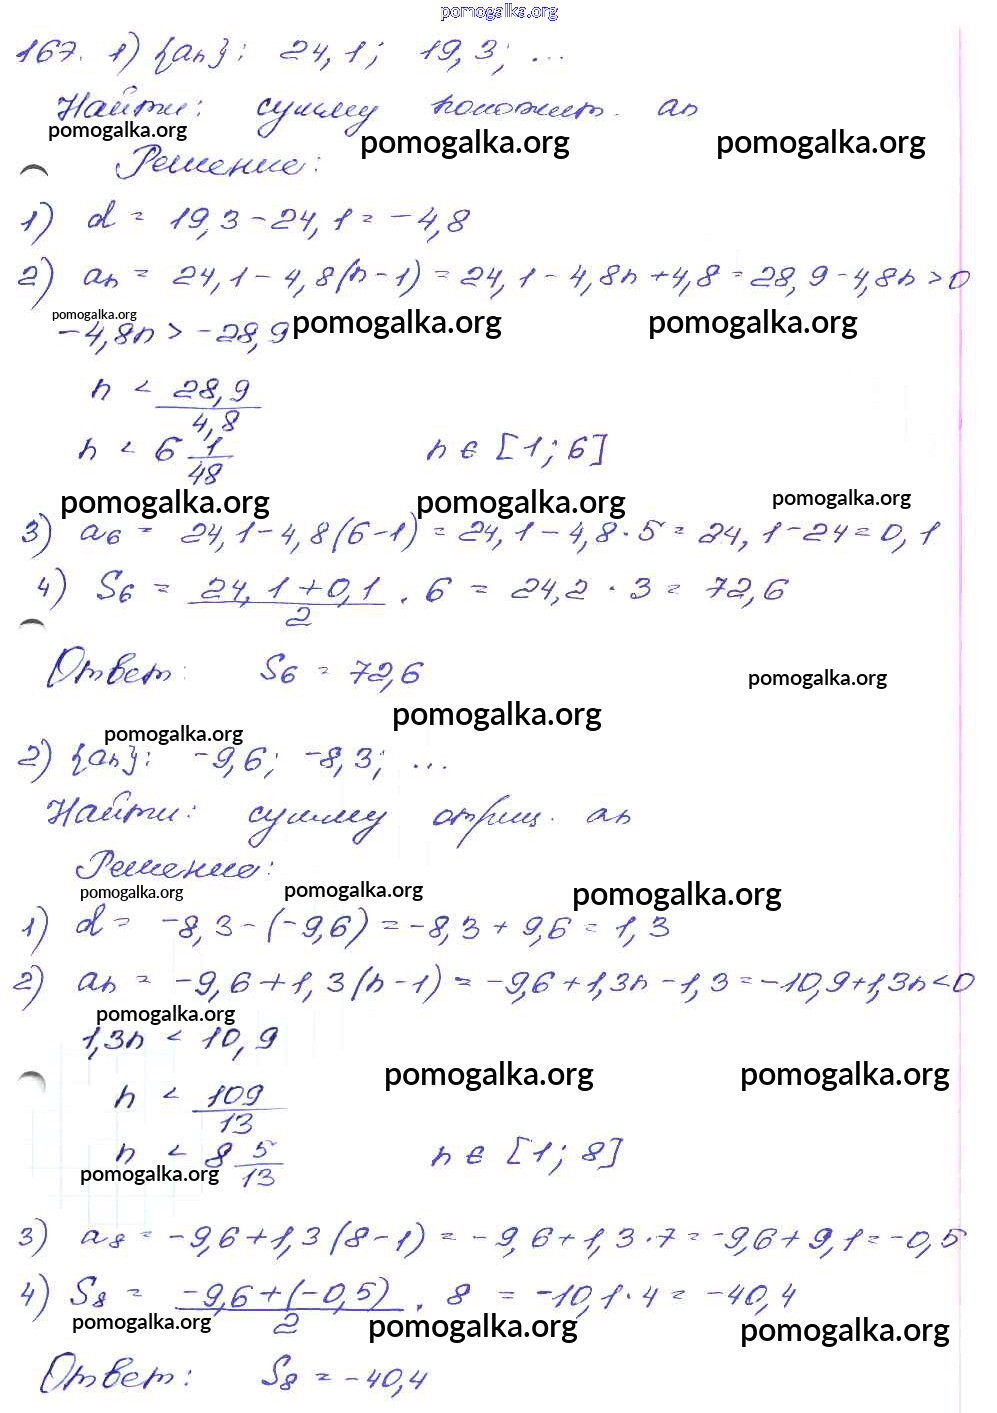 pomogalka.org
167. 1) {an}: 24,1; 19,3; ...
Найти: сумму положит. an
pomogalka.org pomogalka.org pomogalka.org
Решение:
1) d = 19,3 - 24,1 = -4,8
2) an = 24,1 - 4,8(n-1) = 24,1 - 4,8n + 4,8 = 28,9 - 4,8n > 0
pomogalka.org pomogalka.org pomogalka.org
-4,8n > -28,9
n < 28,9/4,8
n < 6 1/48 n ∈ [1; 6]
pomogalka.org pomogalka.org pomogalka.org
3) a6 = 24,1 - 4,8(6-1) = 24,1 - 4,8·5 = 24,1 - 24 = 0,1
4) S6 = (24,1+0,1)/2 · 6 = 24,2 · 3 = 72,6
Ответ: S6 = 72,6
pomogalka.org
pomogalka.org
pomogalka.org
2) {an}: -9,6; -8,3; ...
Найти: сумму отриц. an
Решение:
pomogalka.org pomogalka.org pomogalka.org
1) d = -8,3 - (-9,6) = -8,3 + 9,6 = 1,3
2) an = -9,6 + 1,3(n-1) = -9,6 + 1,3n - 1,3 = -10,9 + 1,3n < 0
pomogalka.org
1,3n < 10,9
pomogalka.org pomogalka.org
n < 109/13
n < 8 5/13 n ∈ [1; 8]
pomogalka.org
3) a8 = -9,6 + 1,3(8-1) = -9,6 + 1,3·7 = -9,6 + 9,1 = -0,5
4) S8 = (-9,6+(-0,5))/2 · 8 = -10,1·4 = -40,4
pomogalka.org pomogalka.org pomogalka.org
Ответ: S8 = -40,4